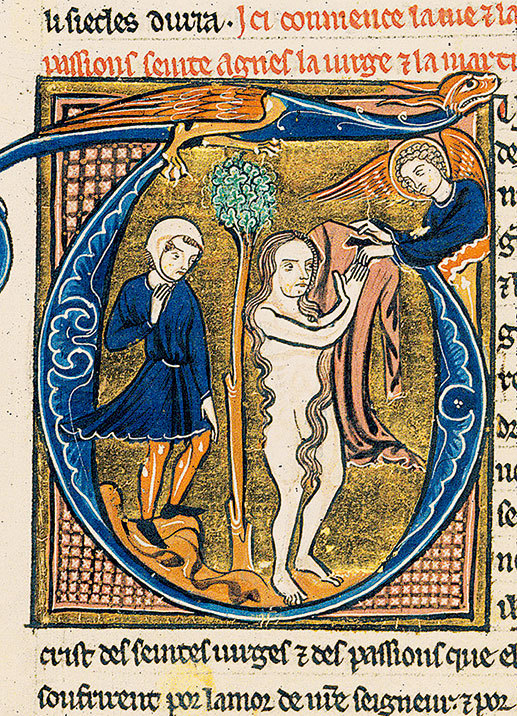 li siecles durra. Ici commence la uie ⁊ la
passions seinte agnes la uirge ⁊ la marti
de
n
g
⁊ l
g
re
di
ue
se
ne
ih
crist des seintes uirges ⁊ des passions que el
soufrirent por lamor de nr̃e seigneur. ⁊ por